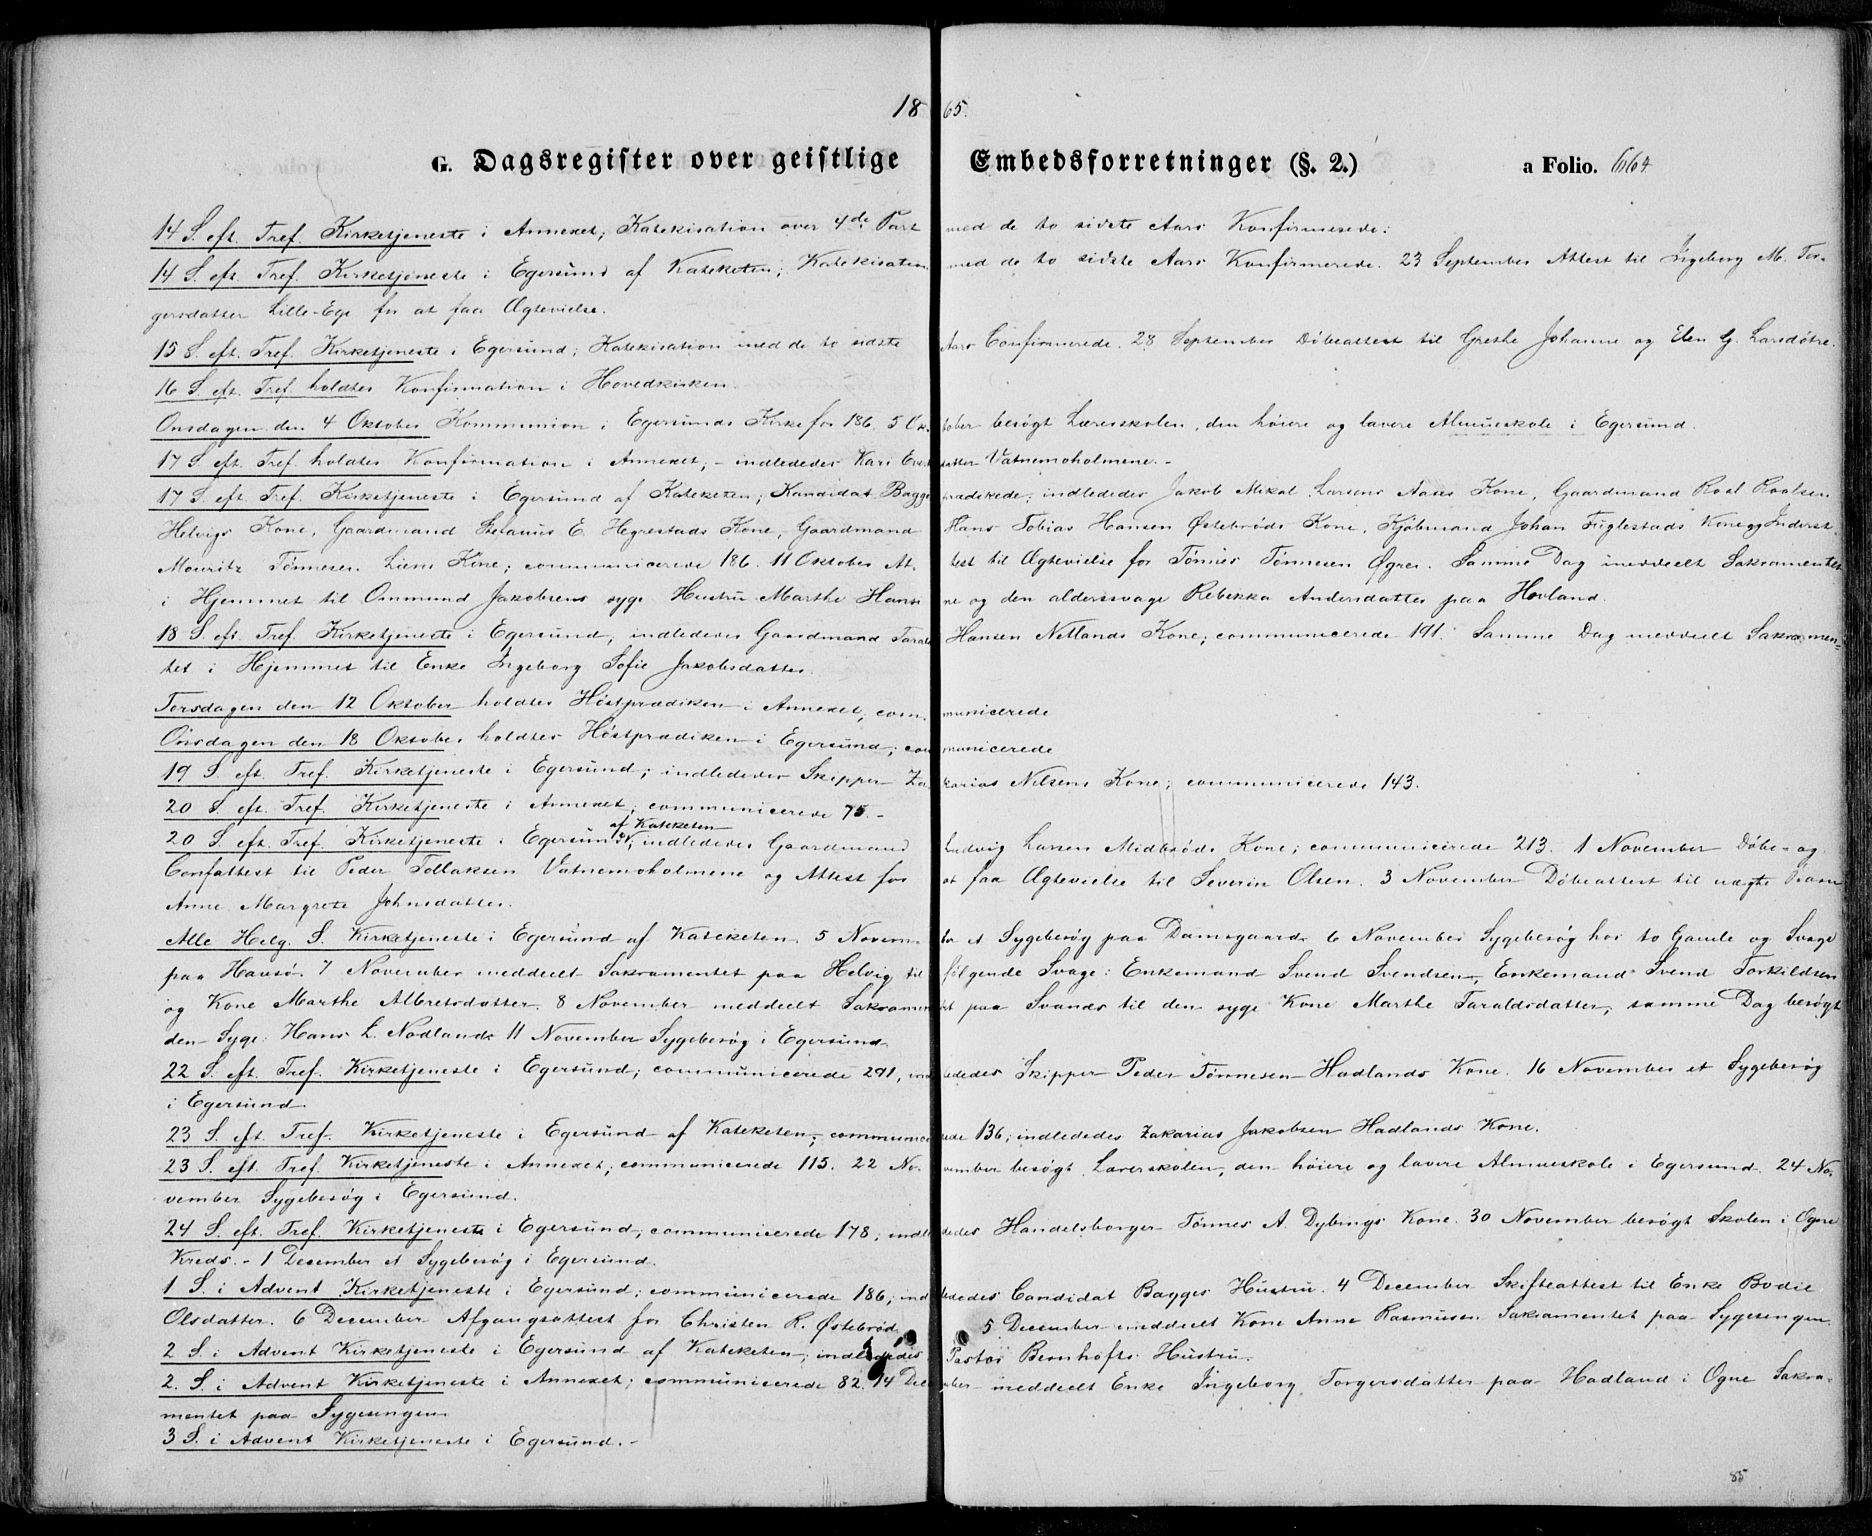 1865.
G. Dagsregister over geistlige Embedsforretninger (§. 2.) a Folio. 664
14 S. eft. Tref. Kirketjeneste i Annexet; Katekisation over 4de Part med de to sidste Aars Konfirmerede.
14 S. eft. Tref. Kirketjeneste i Egersund af Kateketen; Katekisation med de to sidste Aars Konfirmerede. 23 September Attest til Ingeborg M. Tor-
gersdatter Lille-Ege for at faa Ægtevielse.
15 S. eft. Tref. Kirketjeneste i Egersund; Katekisation med de to sidste Aars Confirmerede. 28 September Døbeattest til Grethe Johanne og Elen G. Larsdøtre.
16 S. eft. Tref. holdtes Konfirmation i Hovedkirken.
Onsdagen den 4 Oktober Kommunion i Egersunds Kirke for 186. 5 Oktober besøgt Lærerskolen, den høiere og lavere Almueskole i Egersund.
17 S. eft. Tref. holdtes Konfirmation i Annexet; - indlededes Kari datter Vatnemoholmene. -
17 S. eft. Tref. Kirketjeneste i Egersund af Kateketen; Kandidat Bagge prædikede; indlededes Jakob Mikal Larsens Aases Kone, Gaardmand Roal Roalsen
Helvigs Kone, Gaardmand Stefanus E. Hegrestads Kone, Gaardmand Hans Tobias Hansen Østebrøds Kone, Kjøbmand Johan Fuglestads Kone og Inderst
Mouritz Tønnesen Liens Kone; communicerede 186. 11 Oktober Attest til Ægtevielse for Tønnes Tønnesen Øgrei. Samme Dag meddeelt Sakramentet
i Hjemmet til Ommund Jakobsens syge Hustru Marthe Hansine og den alderssvage Rebekka Andersdatter paa Hovland.
18 S. eft. Tref. Kirketjeneste i Egersund, indlededes Gaardmand Tarald Hansen Netlands Kone; communicerede 191. Samme Dag meddeelt Sakramen-
tet i Hjemmet til Enke Ingeborg Sofie Jakobsdatter.
Torsdagen den 12 Oktober holdtes Høstprædiken i Annexet, communicerede
Onsdagen den 18 Oktober holdtes Høstprædiken i Egersund; communicerede
19 S. eft. Tref. Kirketjeneste i Egersund; indlededes Skipper Zakarias Nilsens Kone; communicerede 143.
20 S. eft. Tref. Kirketjeneste i Annexet; communicerede 75. -
20 S. eft. Tref. Kirketjeneste i Egersund af Kateketen; indlededes Gaardmand Ludvig Larsen Midbrøds Kone; communicerede 213. 1 November Døbe- og
Confattest til Peder Tollaksen Vatnemoholmene og Attest for at faa Ægtevielse til Severin Olsen. 3 November Døbeattest til uægte Barn
Anne Margrete Johnsdatter.
Alle Helg. S. Kirketjeneste i Egersund af Kateketen. 5 November et Sygebesøg paa Damsgaard. 6 November Sygebesøg hos to Gamle og Svage
paa Havsø. 7 November meddeelt Sakramentet paa Helvig til følgende Svage: Enkemand Svend Svendsen, Enkemand Svend Torkildsen
og Kone Marthe Albretsdatter. 8 November meddeelt Sakramentet paa Svands til den syge Kone Marthe Taraldsdatter, samme Dag besøgt
den Syge Hans L. Nodland. 11 November Sygebesøg i Egersund.
22 S. eft. Tref. Kirketjeneste i Egersund; communicerede 291, indlededes Skipper Peder Tønnesen Hadlands Kone. 16 November et Sygebesøg
i Egersund.
23 S. eft. Tref. Kirketjeneste i Egersund af Kateketen; communicerede 136; indlededes Zakarias Jakobsen Hadlands Kone.
23 S. eft. Tref. Kirketjeneste i Annexet; communicerede 115. 22 November besøgt Lærerskolen, den høiere og lavere Almueskole i Egersund. 24 No-
vember Sygebesøg i Egersund.
24 S. eft. Tref. Kirketjeneste i Egersund; communicerede 178; indlededes Handelsborger Tønnes A. Dybings Kone. 30 November besøgt Skolen i Ogne
Kreds. - 1 December et Sygebesøg i Egersund.
1 S. i Advent Kirketjeneste i Egersund; communicerede 186; indlededes Candidat Bagges Hustru. 4 December Skifteattest til Enke Bodil
Olsdatter. 6 December Afgangsattest for Christen R. Østebrød. 5 December meddeelt Kone Anne Rasmusen Sakramentet paa Sygesengen.
2 S. i Advent Kirketjeneste i Egersund af Kateketen; indlededes Pastor Bernhofts Hustru.
2. S. i Advent Kirketjeneste i Annexet; communicerede 82. 14 December meddeelt Enke Ingeborg Torgersdatter paa Hadland i Ogne Sakra-
mentet paa Sygesengen.
3 S. i Advent Kirketjeneste i Egersund. -
85